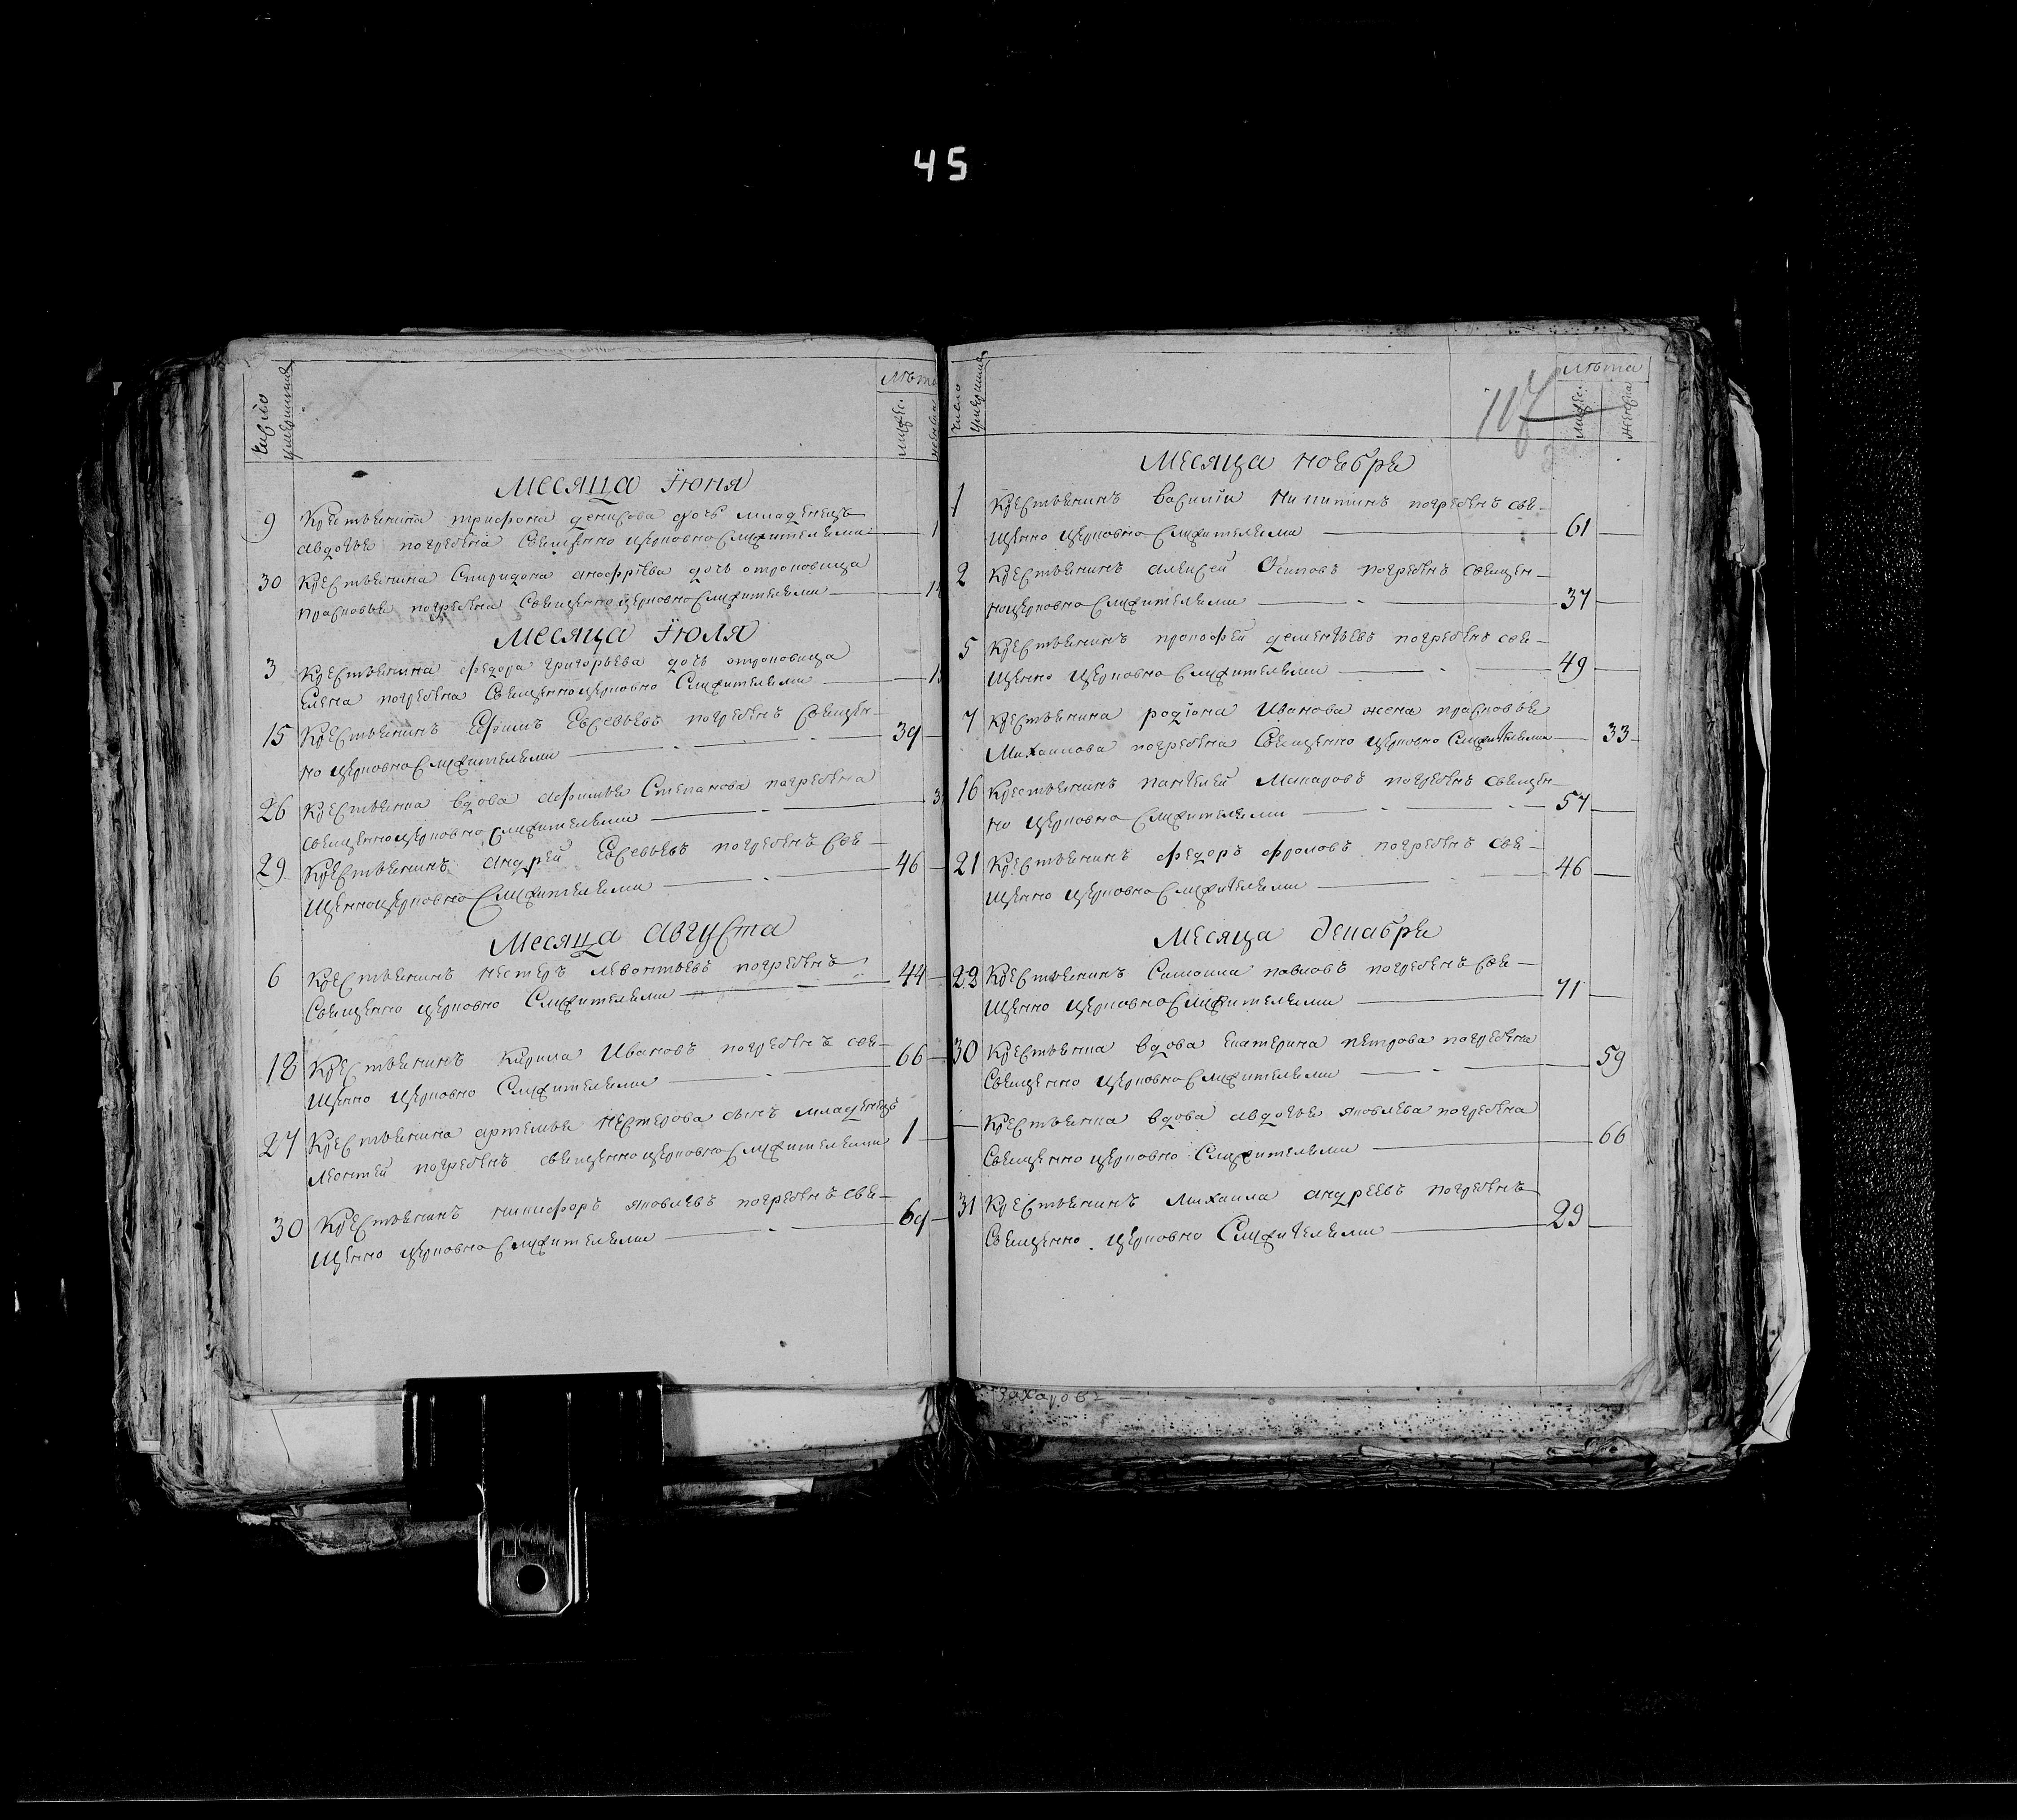 45
Число умершихъ
Лѣта
мужес.
женска
Месяца Іюня
9 Крестьянина трифона денисова дочь младенецъ
авдотья погребена Священно церковнослужителями 1
30 Крестьянина Спиридона анофріева дочь отроковица
прасковья погребена Священноцерковнослужителями
Месяца Іюля
3 Крестьянина федора григорьева дочь отроковица
Елена погребена Священноцерковно Служителями
15 Крестьянинъ Ефимъ Евсевьевъ погребенъ Священ-
но церковнослужителями 39
26 Крестьянка вдова афимья Степанова погребена
священноцерковно служителями
29 Крестьянинъ андрей Евсевьевъ погребенъ Свя-
щенноцерковно Служителями 46
Месяца августа
6 Крестьянинъ нестеръ левонтьевъ погребенъ
Священно церковно Служителями 44
18 Крестьянинъ Кирила Ивановъ погребенъ свя-
щенно церковно Служителями 66
27 Крестьянина артемья нестерова сынъ младенецъ
леонтей погребенъ священноцерковнослужителями 1
30 Крестьянинъ никифоръ яковлевъ погребенъ свя-
щенно церковно служителями 69
Число умершихъ
Лѣта
мужес.
женска
Месяца ноября
1 Крестьянинъ василіи никитинъ погребенъ свя-
щенно церковно служителями 61
2 Крестьянинъ алексей Осиповъ погребенъ священ-
ноцерковно служителями 37
5 Крестьянинъ прокофей дементьевъ погребенъ свя-
щенно церковно служителями 49
7 Крестьянина родіона Иванова жена прасковья
Михаилова погребена Священно церковно Служителями 33
16 Крестьянинъ пантелей Макаровъ погребенъ священ-
но церковно служителями 57
21 Крестьянинъ федоръ фроловъ погребенъ свя-
щенно церковно служителями 46
Месяца декабря
22 Крестьянинъ Самоила павловъ погребенъ Свя-
щенно церковно Служителями 71
30 Крестьянка вдова Екатерина петрова погребена
Священно церковно служителями 59
— Крестьянка вдова авдотья яковлева погребена
Священно церковно Служителями 66
31 Крестьянинъ Михаила андреевъ погребенъ
Священно церковно Служителями 29
Захаровъ